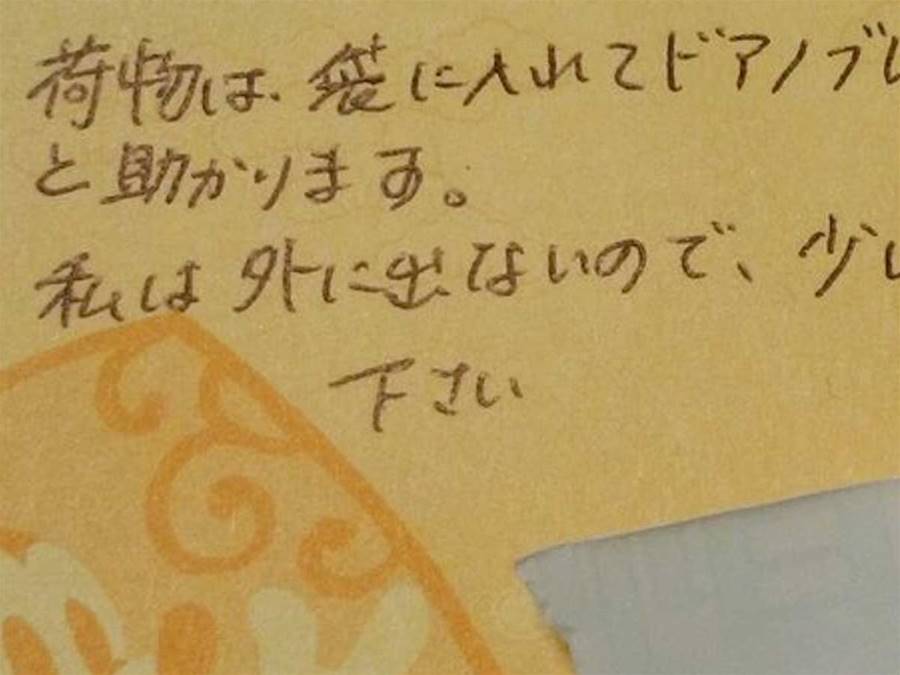 荷物は、袋に入れてドアノブ
と助かります。
私は外に出ないので、少し
下さい